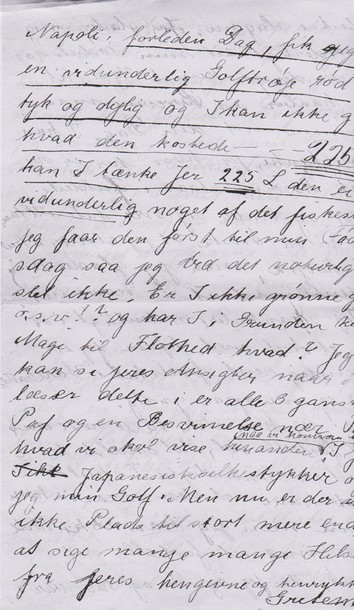 Napoli. forleden Dag, fik jeg
en vidunderlig Golftrøje rød
tyk og dejlig og I kan ikke g
hvad den kostede — — 225
kan I tænke Jer 225 L den er
vidunderlig noget af det fiskes
jeg faar den først til min Fød
sdag saa jeg har det naturlig
slet ikke. Er I ikke grønne
o.s.v.!? og har I i Grunden
Mage til Flothed hvad? Jeg
kan se jeres Ansigter naar
læser dette i er alle 3 gans
Paf og en Besvimelse nær
naar vi kommer
hvad vi skal vise hinanden, I
Japanesiske stykker o
jeg min Golf. Men nu er der
ikke Plads til stort mere end
at sige mange mange Hils
fra jeres hengivne og henrykte
Gretem